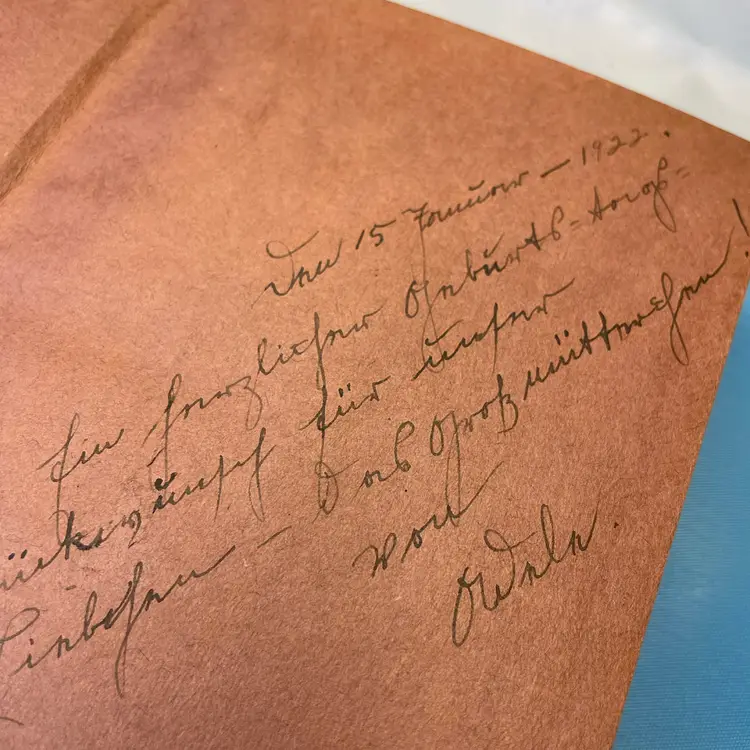 Den 15 Januar – 1922.
Ein herzlicher Geburts=tags=
ückswunsch für unser
Liebchen – das Großmütterchen!
von
Adele.